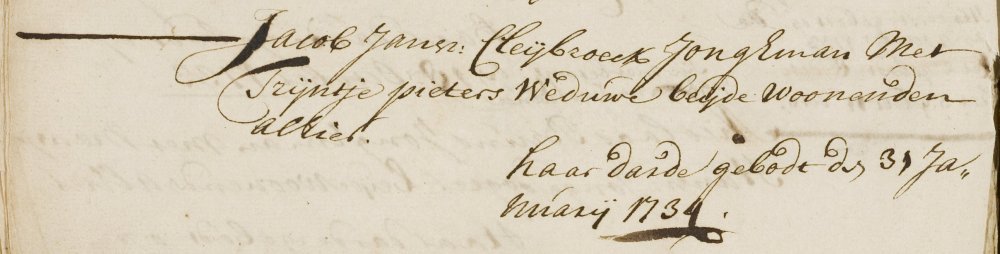 Jacob Jansz: Cleijbroeck Jongkman Met
Trijntje pieters Weduwe beijde woonenden
alhier.
haar darde gebodt den 31 Ja„
nuarij 1734.